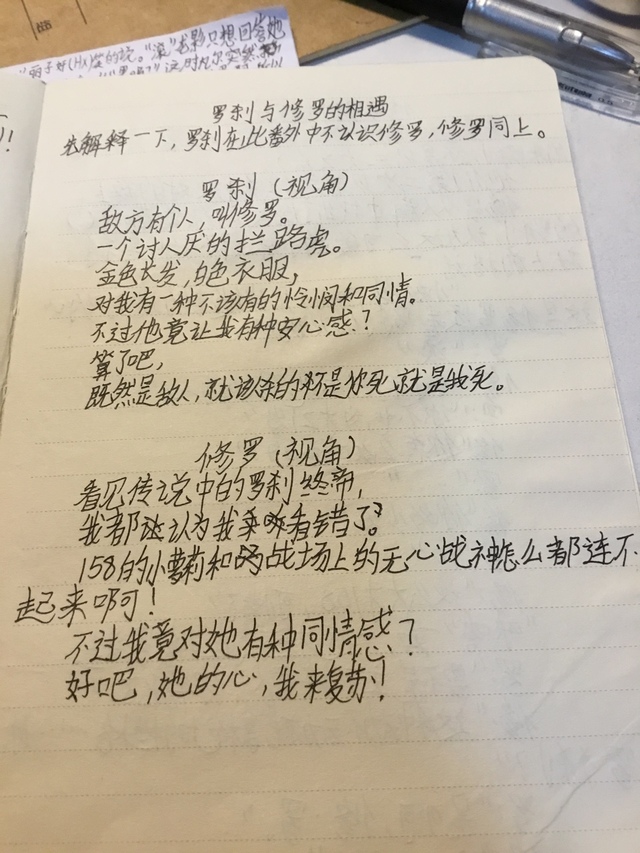 雨子好(Hx)
度的说。"滚"龙影只想回答她
罗刹与修罗的相遇
先解释一下，罗刹在此番外中不认识修罗，修罗同上。
罗刹（视角）
敌方有个人，叫修罗。
一个讨人厌的拦路虎。
金色长发，白色衣服，
对我有一种不该有的怜悯和同情。
不过他竟让我有种安心感？
算了吧，
既然是敌人，就该杀的不是你死就是我死。
修罗（视角）
看见传说中的罗刹终帝，
我都认为我看错了？
158的小萝莉和战场上的无心战神怎么都连不
起来啊！
不过我竟对她有种同情感？
好吧，她的心，我来复苏！